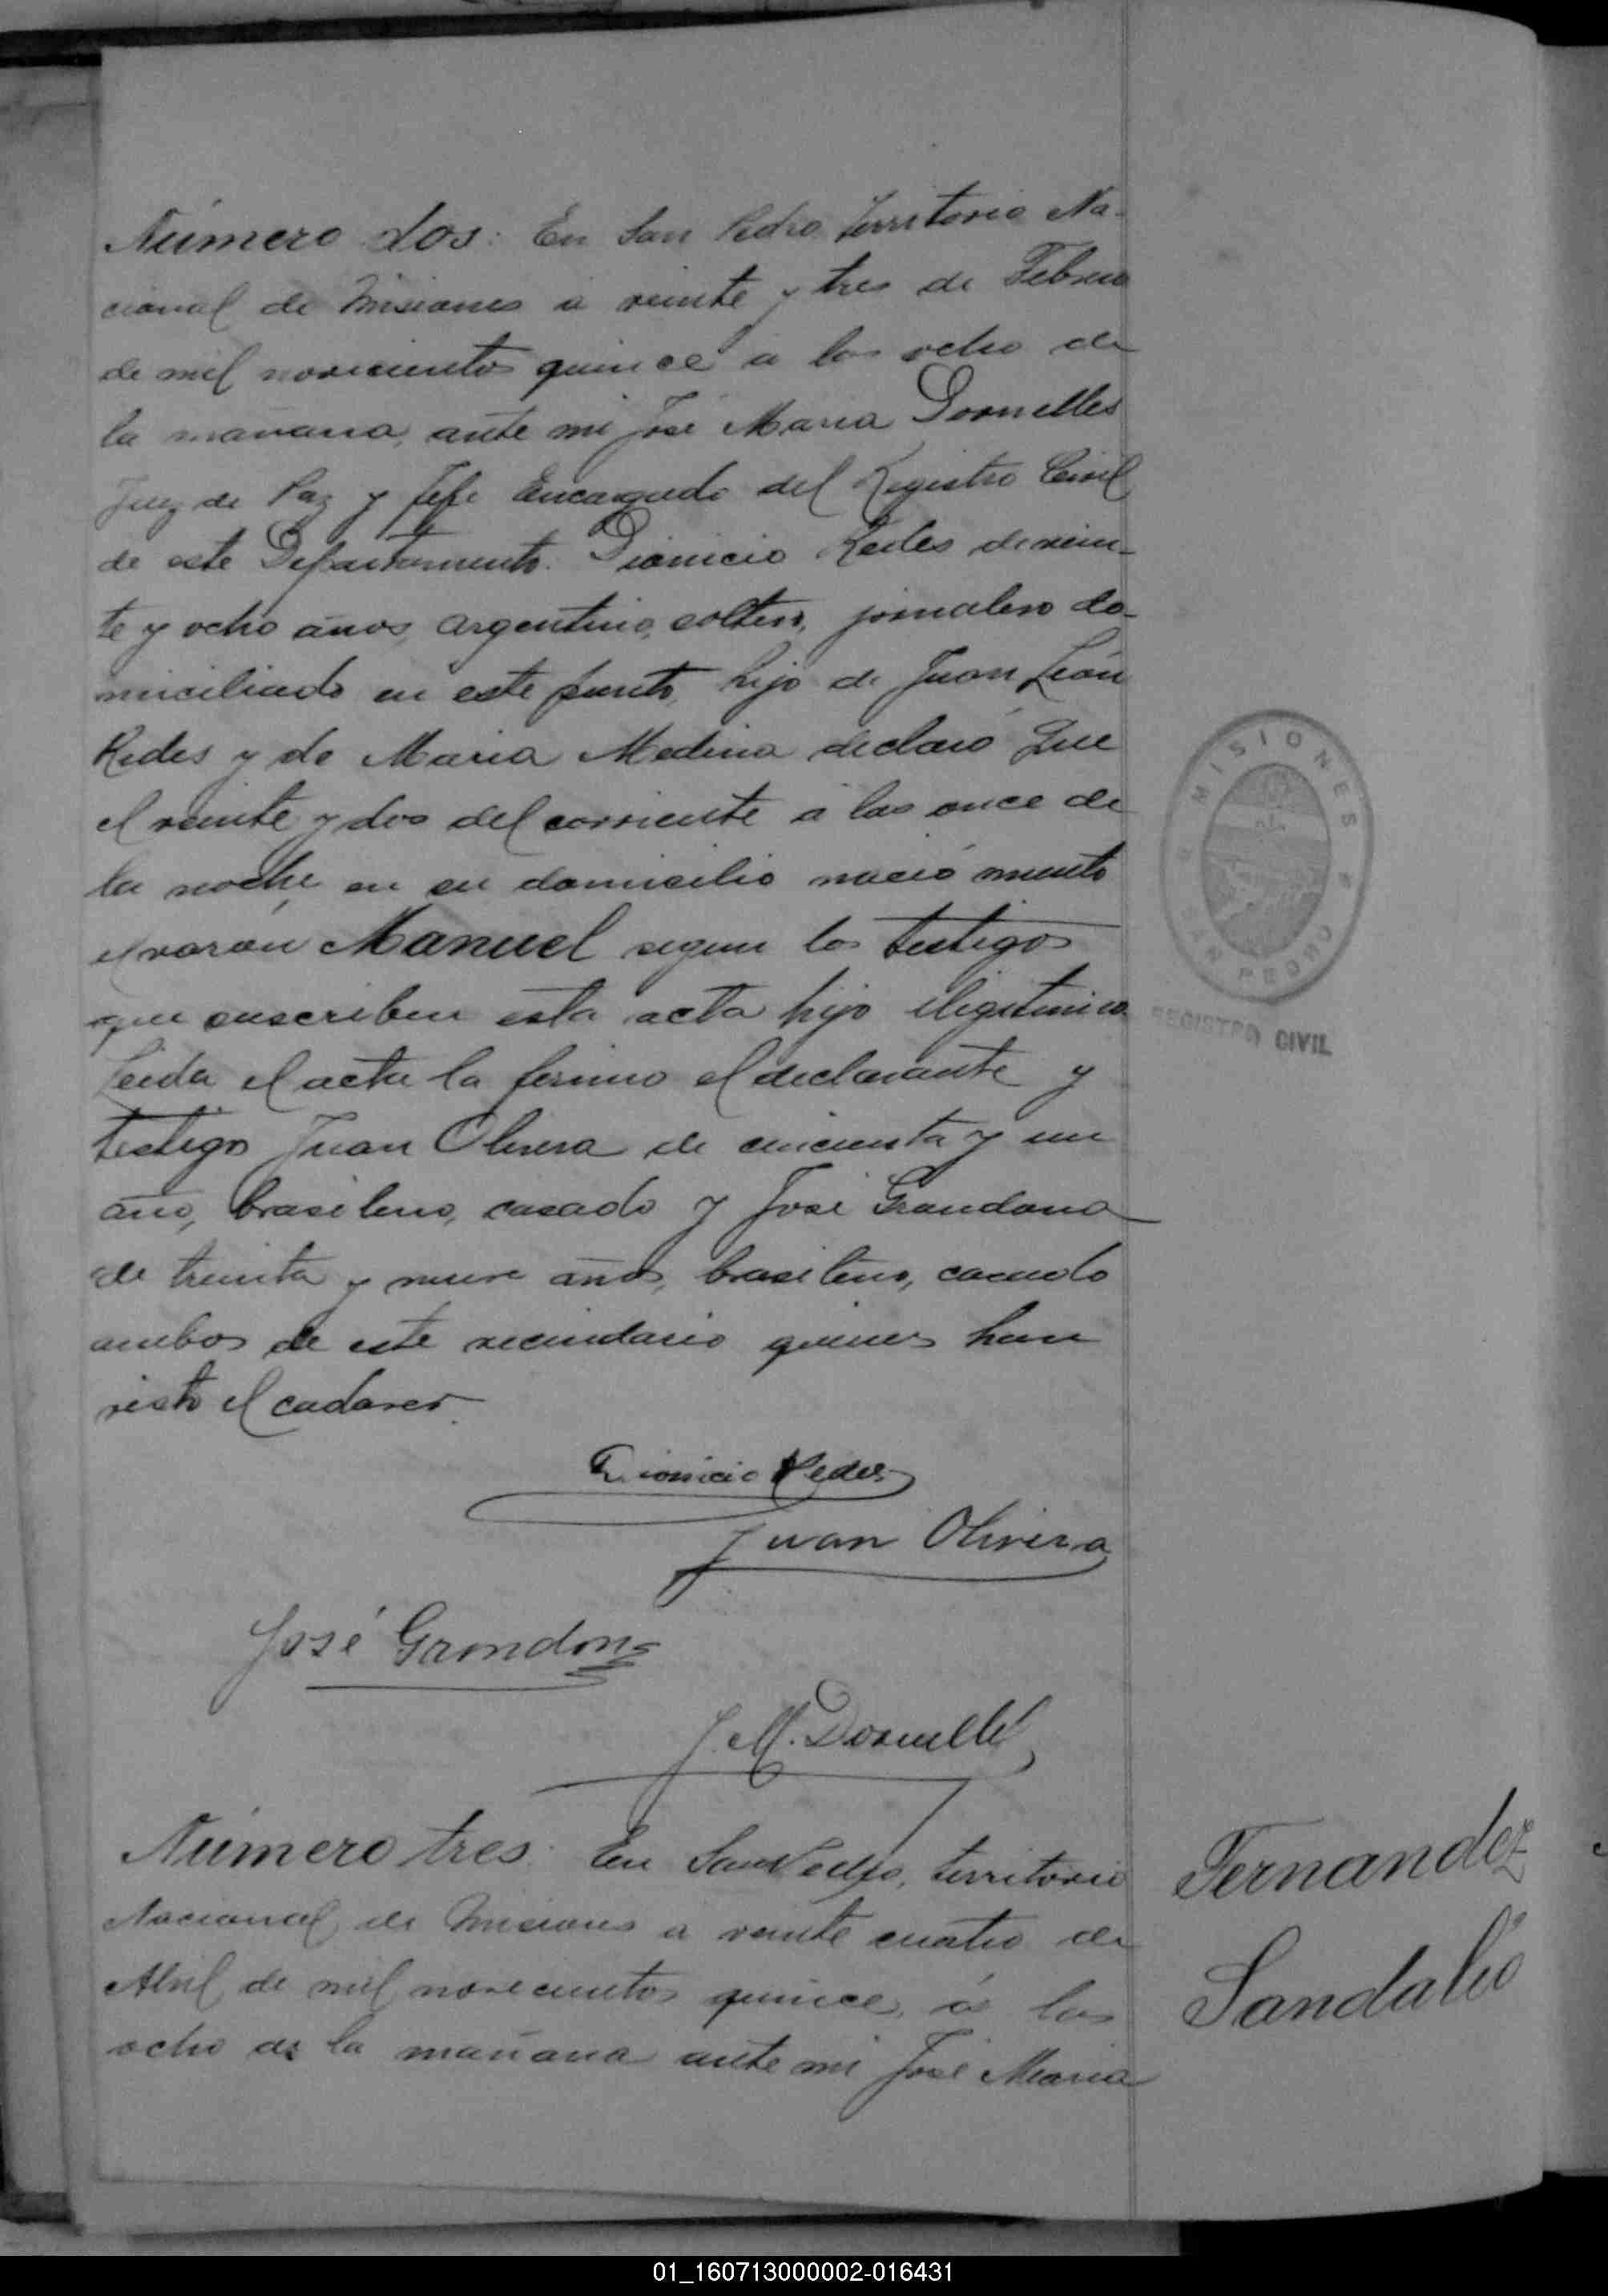 Número dos: En San Pedro Territorio Na-
cional de Misiones a veinte y tres de Febrero
de mil novecientos quince a las ocho de
la mañana, ante mi José Maria Dornelles
Juez de Paz y Jefe Encargado del Registro Civil
de este Departamento. Dionicio Redes de vein-
te y ocho años, argentino, soltero, jornalero do-
miciliado en este punto, hijo de Juan León
Redes y de Maria Medina declaró Que
el veinte y dos del corriente á las once de
la noche en su domicilio nació muerto
el varón Manuel segun los testigos
que suscriben esta acta hijo ilegitimico
Leida el acta la firmo el declarante y
testigos Juan Olivera de cincuenta y un
año, brasilero, casado y José Grandona
de treinta y nueve años, brasilero, casado
ambos de este vecindario quienes han
visto el cadaver
Dionicio Redes
Juan Olivera
José Grandona
J. M. Dornelles
Número tres: En San Pedro, territorio
Nacional de Misiones a veinte cuatro de
Abril de mil novecientos quince, á las
ocho de la mañana ante mi José Maria
MISIONES
SAN PEDRO
REGISTRO CIVIL
Fernandez
Sandalio
01_160713000002-016431